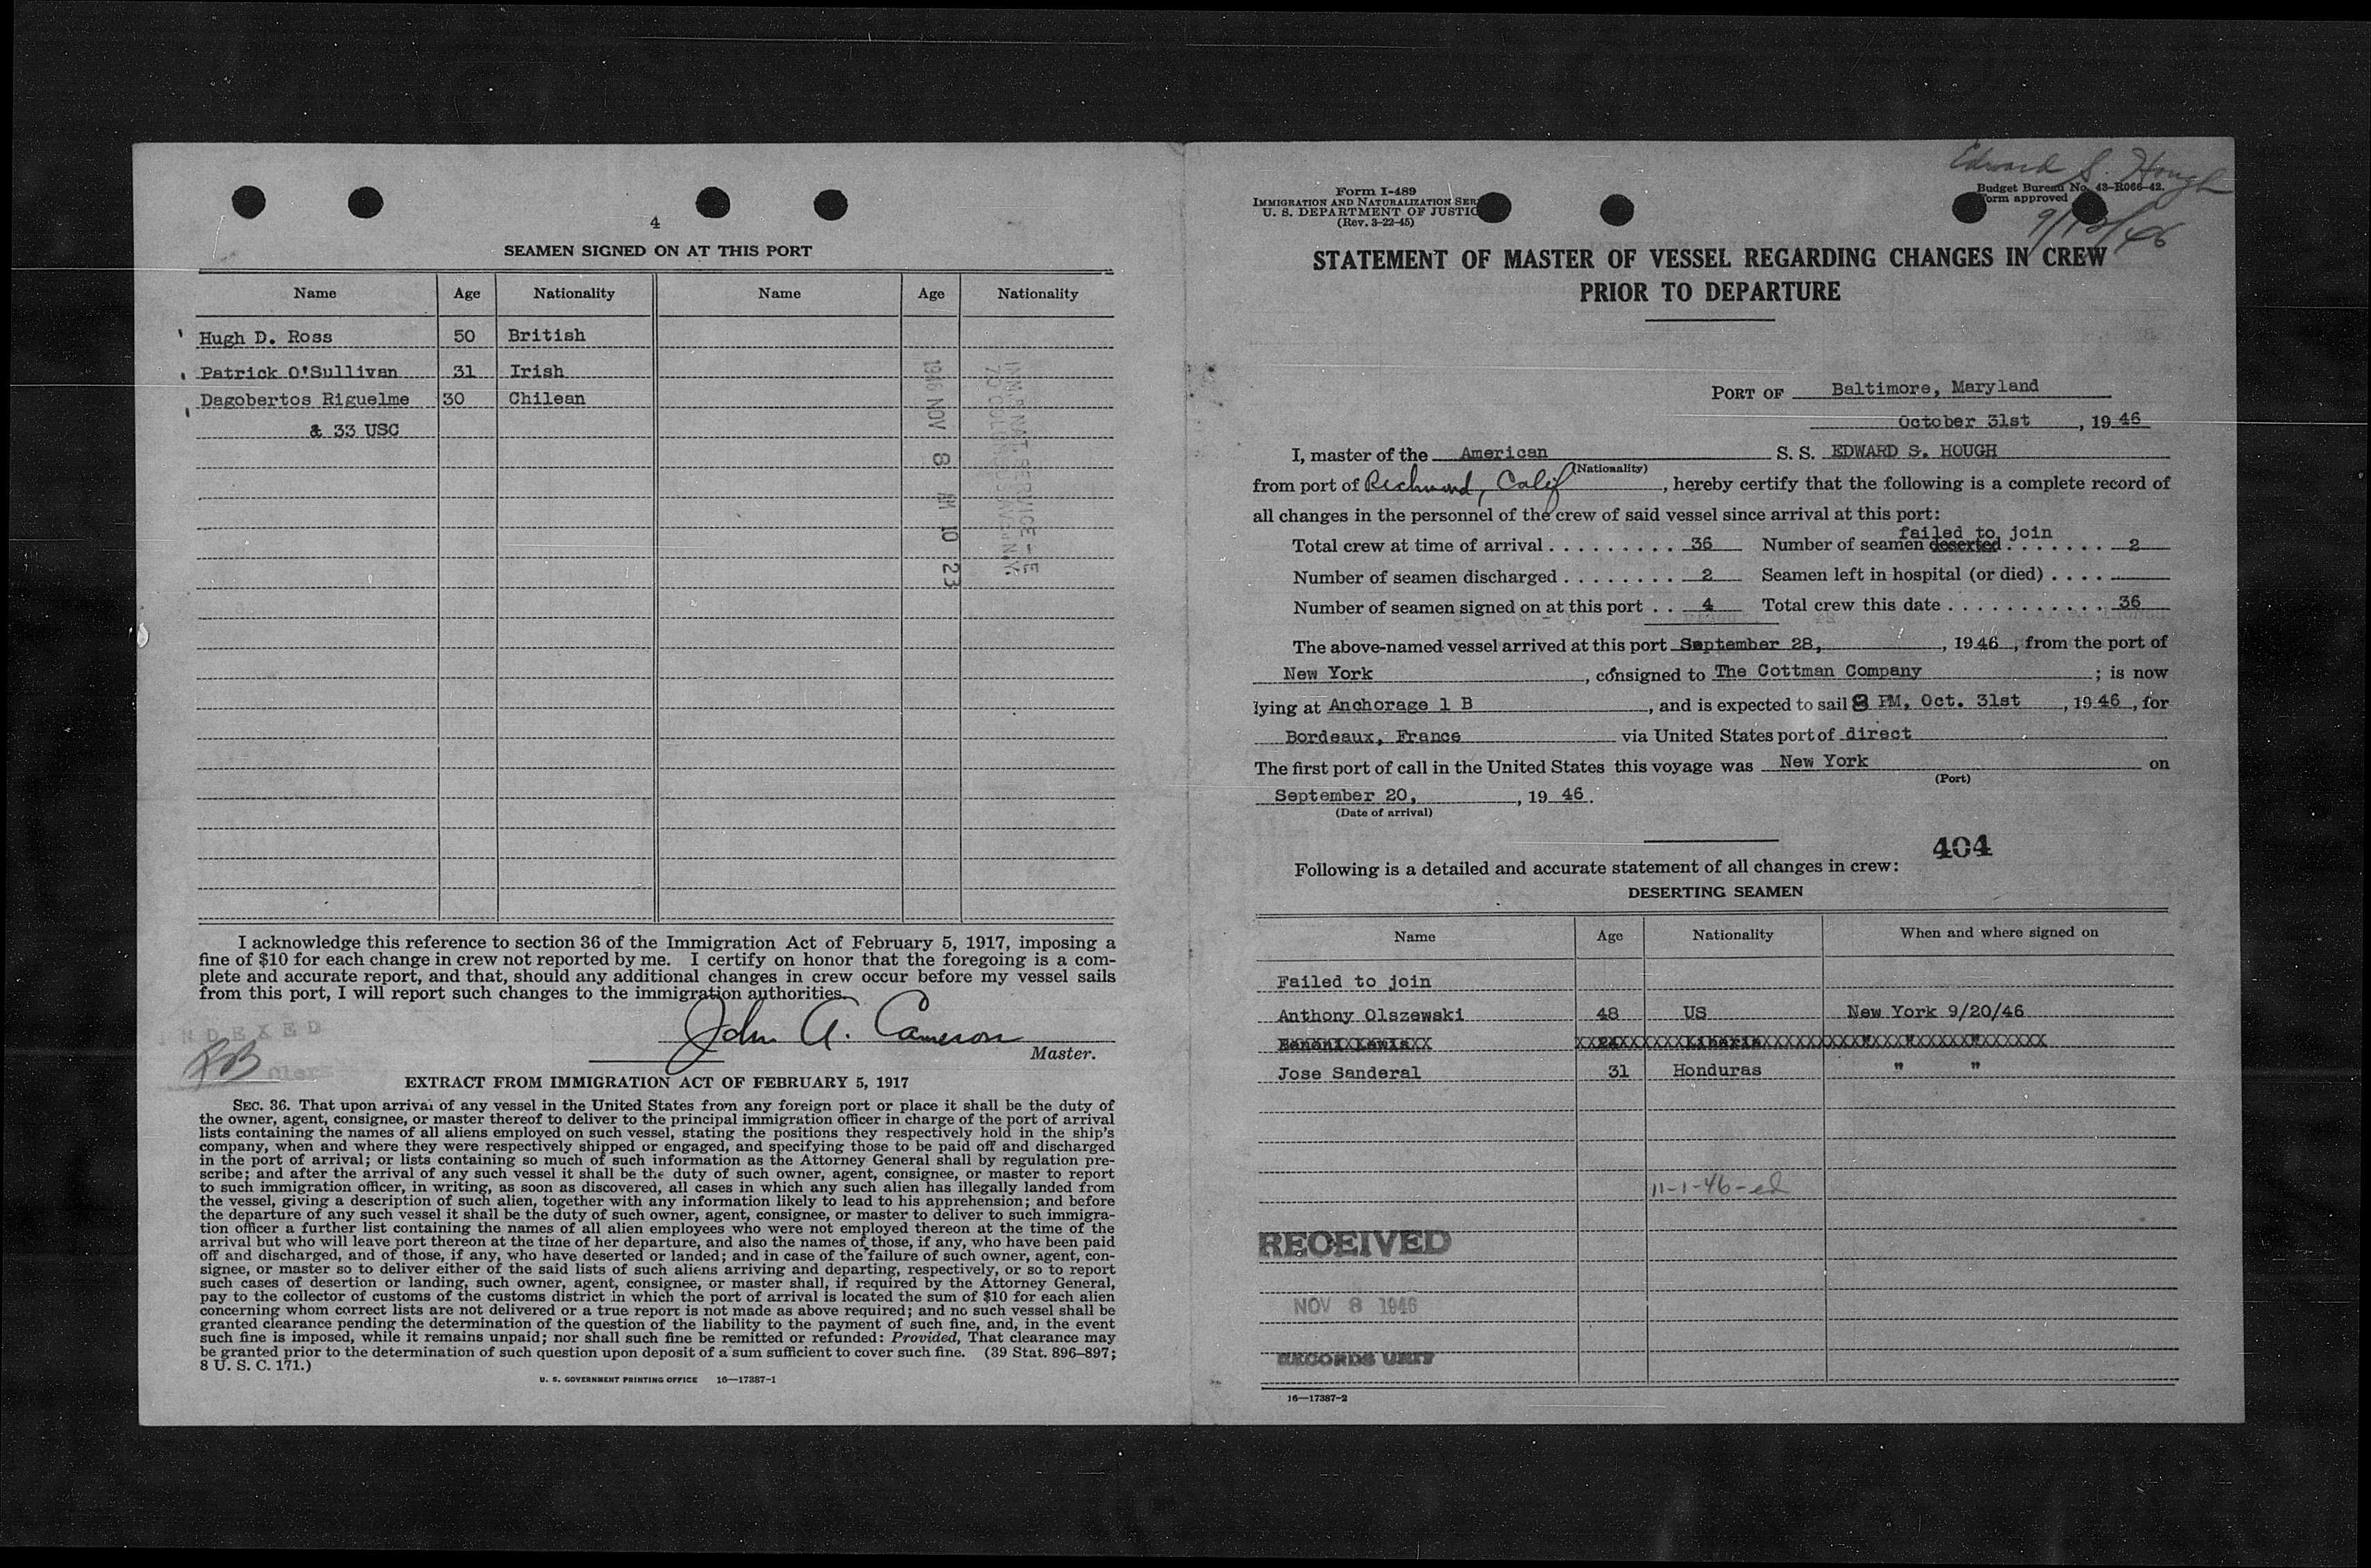 4
SEAMEN SIGNED ON AT THIS PORT
Name Age Nationality Name Age Nationality
Hugh D. Ross 50 British
Patrick O'Sullivan 31 Irish
Dagobertos Riguelme 30 Chilean
& 33 USC
1946 NOV 8 AM 10 23
I acknowledge this reference to section 36 of the Immigration Act of February 5, 1917, imposing a
fine of $10 for each change in crew not reported by me. I certify on honor that the foregoing is a com-
plete and accurate report, and that, should any additional changes in crew occur before my vessel sails
from this port, I will report such changes to the immigration authorities.
John A. Cameron
Master.
INDEXED
EXTRACT FROM IMMIGRATION ACT OF FEBRUARY 5, 1917
SEC. 36. That upon arrival of any vessel in the United States from any foreign port or place it shall be the duty of
the owner, agent, consignee, or master thereof to deliver to the principal immigration officer in charge of the port of arrival
lists containing the names of all aliens employed on such vessel, stating the positions they respectively hold in the ship's
company, when and where they were respectively shipped or engaged, and specifying those to be paid off and discharged
in the port of arrival; or lists containing so much of such information as the Attorney General shall by regulation pre-
scribe; and after the arrival of any such vessel it shall be the duty of such owner, agent, consignee, or master to report
to such immigration officer, in writing, as soon as discovered, all cases in which any such alien has illegally landed from
the vessel, giving a description of such alien, together with any information likely to lead to his apprehension; and before
the departure of any such vessel it shall be the duty of such owner, agent, consignee, or master to deliver to such immigra-
tion officer a further list containing the names of all alien employees who were not employed thereon at the time of the
arrival but who will leave port thereon at the time of her departure, and also the names of those, if any, who have been paid
off and discharged, and of those, if any, who have deserted or landed; and in case of the failure of such owner, agent, con-
signee, or master so to deliver either of the said lists of such aliens arriving and departing, respectively, or so to report
such cases of desertion or landing, such owner, agent, consignee, or master shall, if required by the Attorney General,
pay to the collector of customs of the customs district in which the port of arrival is located the sum of $10 for each alien
concerning whom correct lists are not delivered or a true report is not made as above required; and no such vessel shall be
granted clearance pending the determination of the question of the liability to the payment of such fine, and, in the event
such fine is imposed, while it remains unpaid; nor shall such fine be remitted or refunded: Provided, That clearance may
be granted prior to the determination of such question upon deposit of a sum sufficient to cover such fine. (39 Stat. 896–897;
8 U. S. C. 171.)
U. S. GOVERNMENT PRINTING OFFICE 16—17387-1
Edward S. Hough
Form I-489
IMMIGRATION AND NATURALIZATION SER
U. S. DEPARTMENT OF JUSTIC
(Rev. 3-22-45)
Budget Bureau No. 43-R066-42.
Form approved
STATEMENT OF MASTER OF VESSEL REGARDING CHANGES IN CREW
PRIOR TO DEPARTURE
PORT OF Baltimore, Maryland
October 31st, 1946
I, master of the American S. S. EDWARD S. HOUGH
(Nationality)
from port of Richmond, Calif, hereby certify that the following is a complete record of
all changes in the personnel of the crew of said vessel since arrival at this port:
failed to join
Total crew at time of arrival . . . . . . . . . . 36 Number of seamen deserted . . . . . . . 2
Number of seamen discharged . . . . . . . . 2 Seamen left in hospital (or died) . . . .
Number of seamen signed on at this port . . 4 Total crew this date . . . . . . . . . . . . 36
The above-named vessel arrived at this port September 28, 1946, from the port of
New York, consigned to The Cottman Company; is now
lying at Anchorage 1 B, and is expected to sail 8 PM, Oct. 31st, 1946, for
Bordeaux, France via United States port of direct
The first port of call in the United States this voyage was New York on
(Port)
September 20, 1946.
(Date of arrival)
404
Following is a detailed and accurate statement of all changes in crew:
DESERTING SEAMEN
Name Age Nationality When and where signed on
Failed to join
Anthony Olszewski 48 US New York 9/20/46
Jose Sanderal 31 Honduras " "
11-1-46-ed
RECEIVED
NOV 8 1946
RECORDS UNIT
16—17387-2